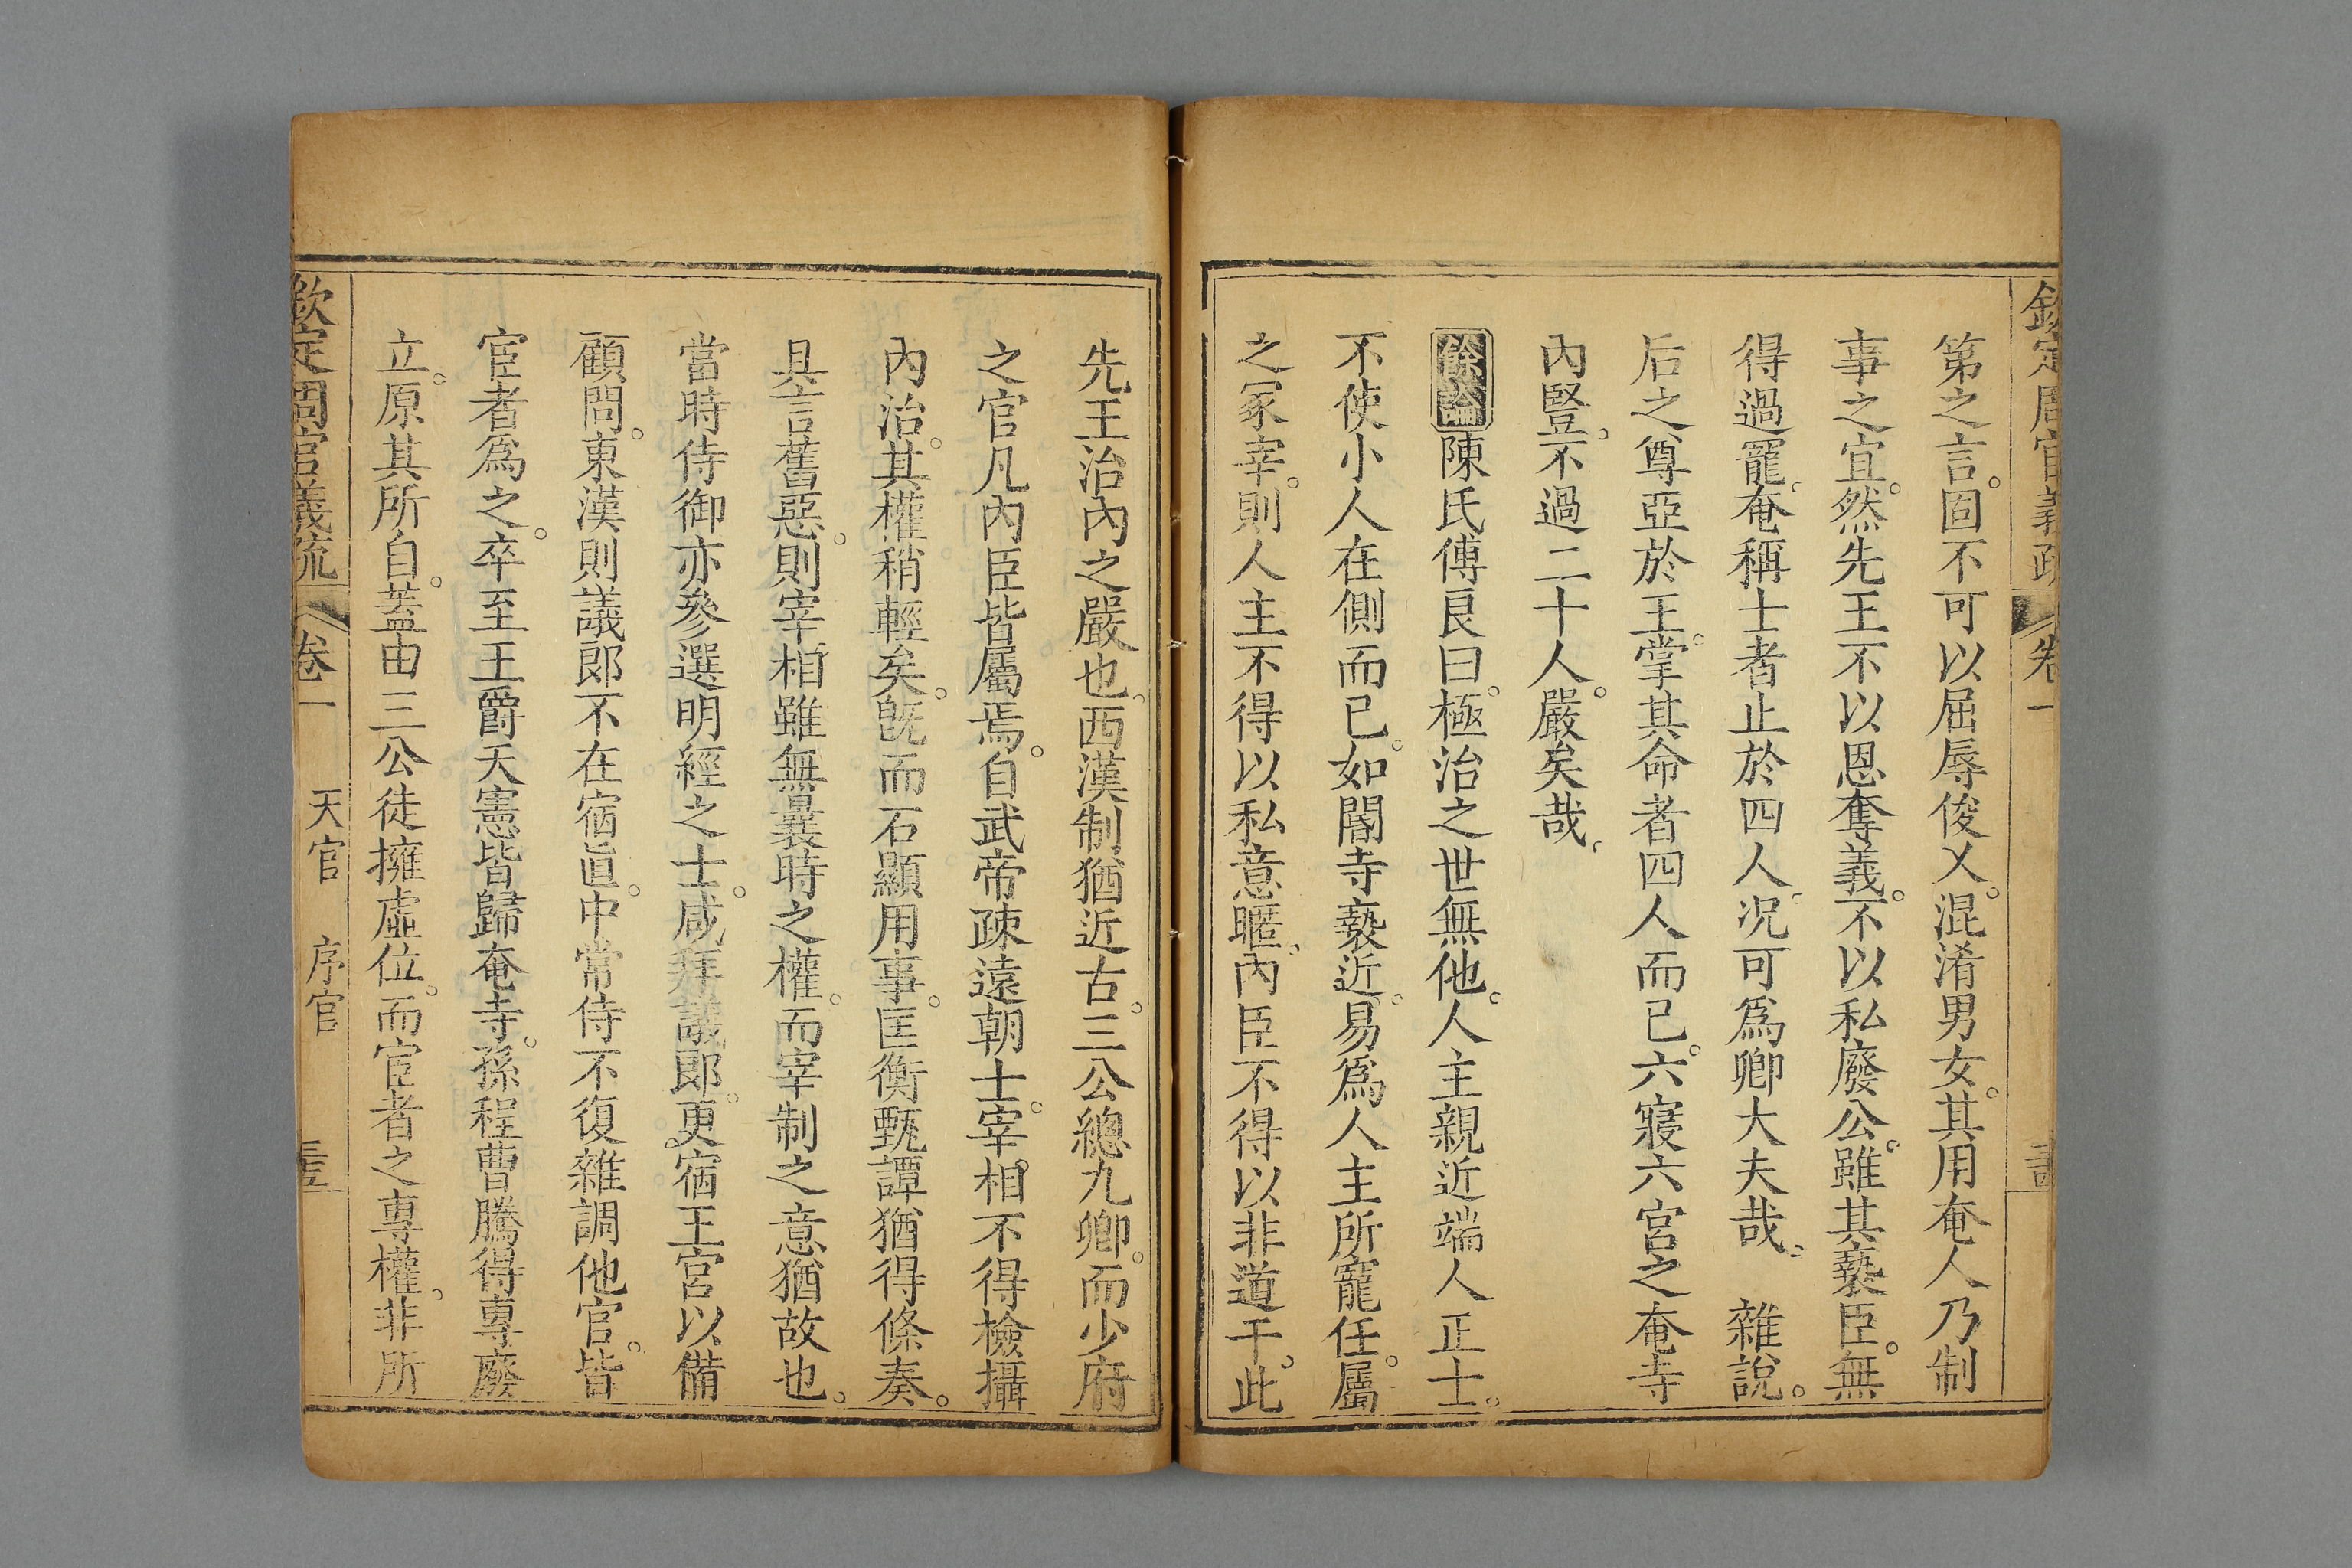 欽定周官義疏 卷一
第之言。固不可以屈辱俊乂。混淆男女。其用奄人乃制
事之宜。然先王不以恩奪義。不以私廢公。雖其褻臣。無
得過寵。奄稱士者止於四人。况可爲卿大夫哉。 雜說。
后之尊亞於王。掌其命者四人而已。六寢六宮之奄寺
內豎。不過二十人。嚴矣哉。
餘論陳氏傅良曰。極治之世無他。人主親近端人正士。
不使小人在側而已。如閽寺褻近。易爲人主所寵任。屬
之冢宰。則人主不得以私意暱。內臣不得以非道干。此
先王治內之嚴也。西漢制猶近古。三公總九卿。而少府
之官凡內臣皆屬焉。自武帝疎遠朝士。宰相不得檢攝
內治。其權稍輕矣。旣而石顯用事。匡衡甄譚猶得條奏。
具言舊惡。則宰相雖無曩時之權。而宰制之意猶故也。
當時侍御亦參選明經之士。咸拜議郎。更宿王宮以備
顧問。東漢則議郎不在宿直。中常侍不復雜調他官。皆
宦者爲之。卒至王爵天憲皆歸奄寺。孫程曹騰得專廢
立。原其所自。蓋由三公徒擁虛位。而宦者之專權。非所
欽定周官義疏 卷一 天官 序官